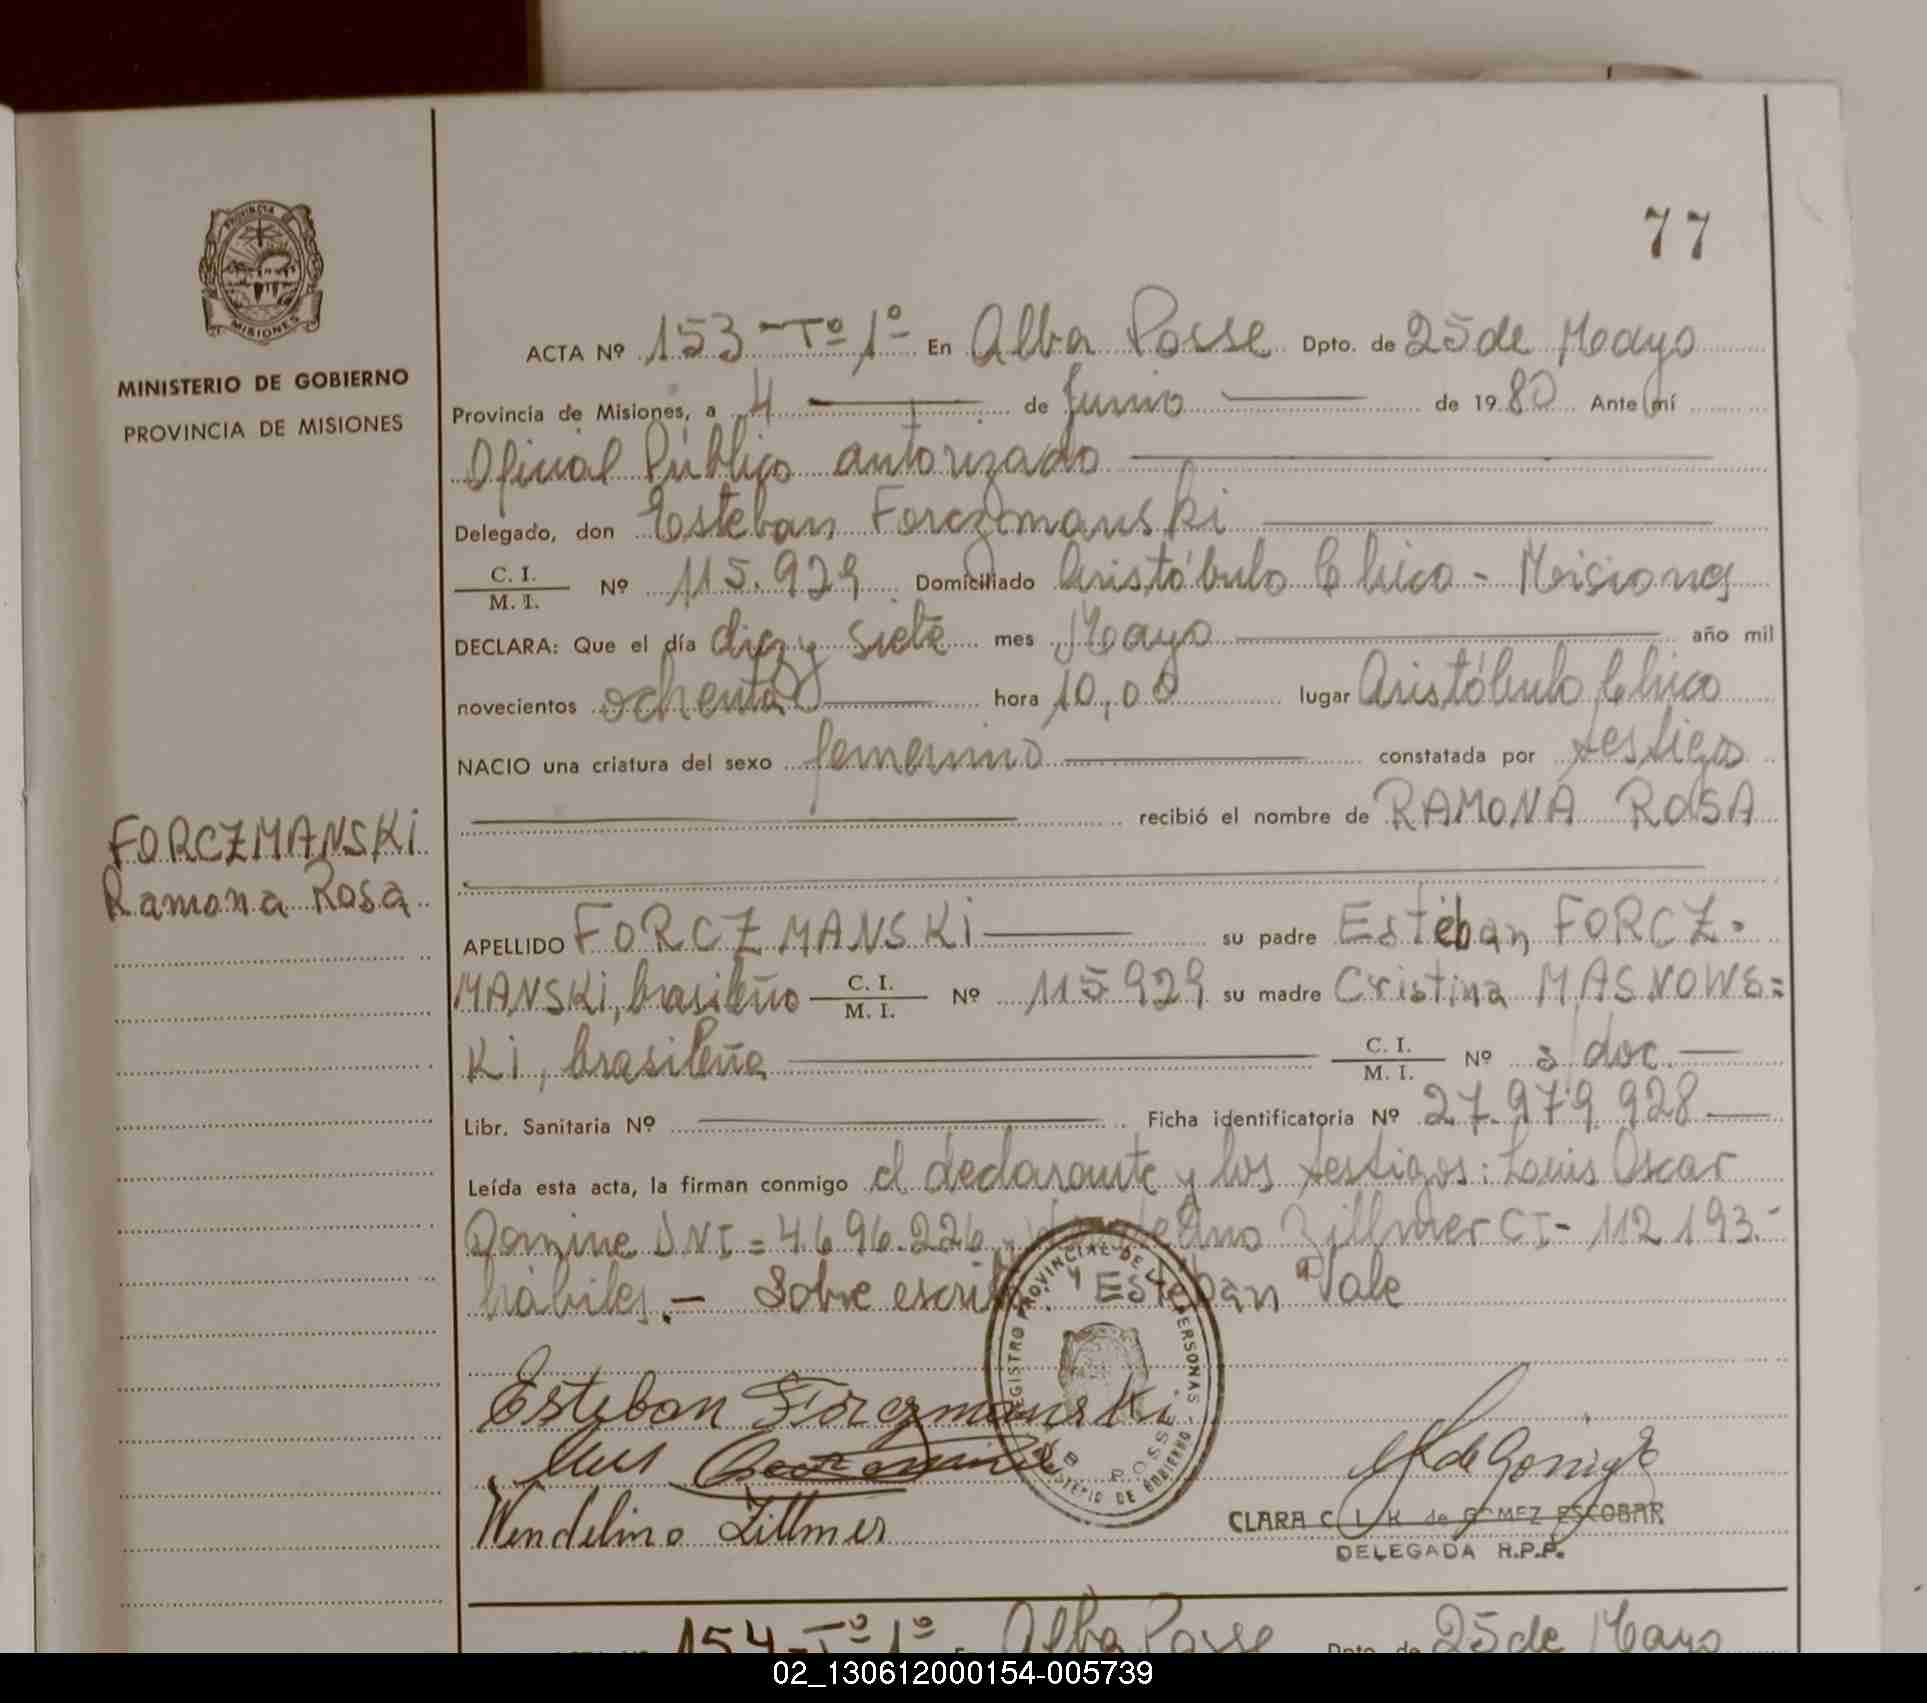 77
PROVINCIA DE
MISIONES
MINISTERIO DE GOBIERNO
PROVINCIA DE MISIONES
FORCZMANSKi
Ramona Rosa
ACTA Nº 153 - Tº 1º - En Alba Posse Dpto. de 25 de Mayo
Provincia de Misiones, a 4 de Junio de 1980 Ante mí
Oficial Público autorizado
Delegado, don Esteban Forczmanski
C. I. / M. I. Nº 115.929 Domiciliado Aristóbulo Chico - Misiones
DECLARA: Que el día diez y siete mes Mayo año mil
novecientos ochenta hora 10,00 lugar Aristóbulo Chico
NACIO una criatura del sexo femenino constatada por testigos
recibió el nombre de RAMONA ROSA
APELLIDO FORCZMANSKi su padre Estéban FORCZ-
MANSKi, brasileño C. I. / M. I. Nº 115929 su madre Cristina MASNOWS=
Ki, brasileña C. I. / M. I. Nº s/doc.
Libr. Sanitaria Nº Ficha identificatoria Nº 27.979.928
Leída esta acta, la firman conmigo el declarante y los testigos: Louis Oscar
DNI = 4.696.226, Zillmer CI - 112.193.-
hábiles.- Sobre escrito: "Estéban" Vale
Esteban Forczmanski
Luis
Wendelino Zillmer
REGISTRO PROVINCIAL DE LAS PERSONAS
MINISTERIO DE GOBIERNO
POSSE
CLARA C. L. K. de GOMEZ ESCOBAR
DELEGADA R.P.P.
154 - Tº 1º En Alba Posse Dpto. de 25 de Mayo
02_130612000154-005739